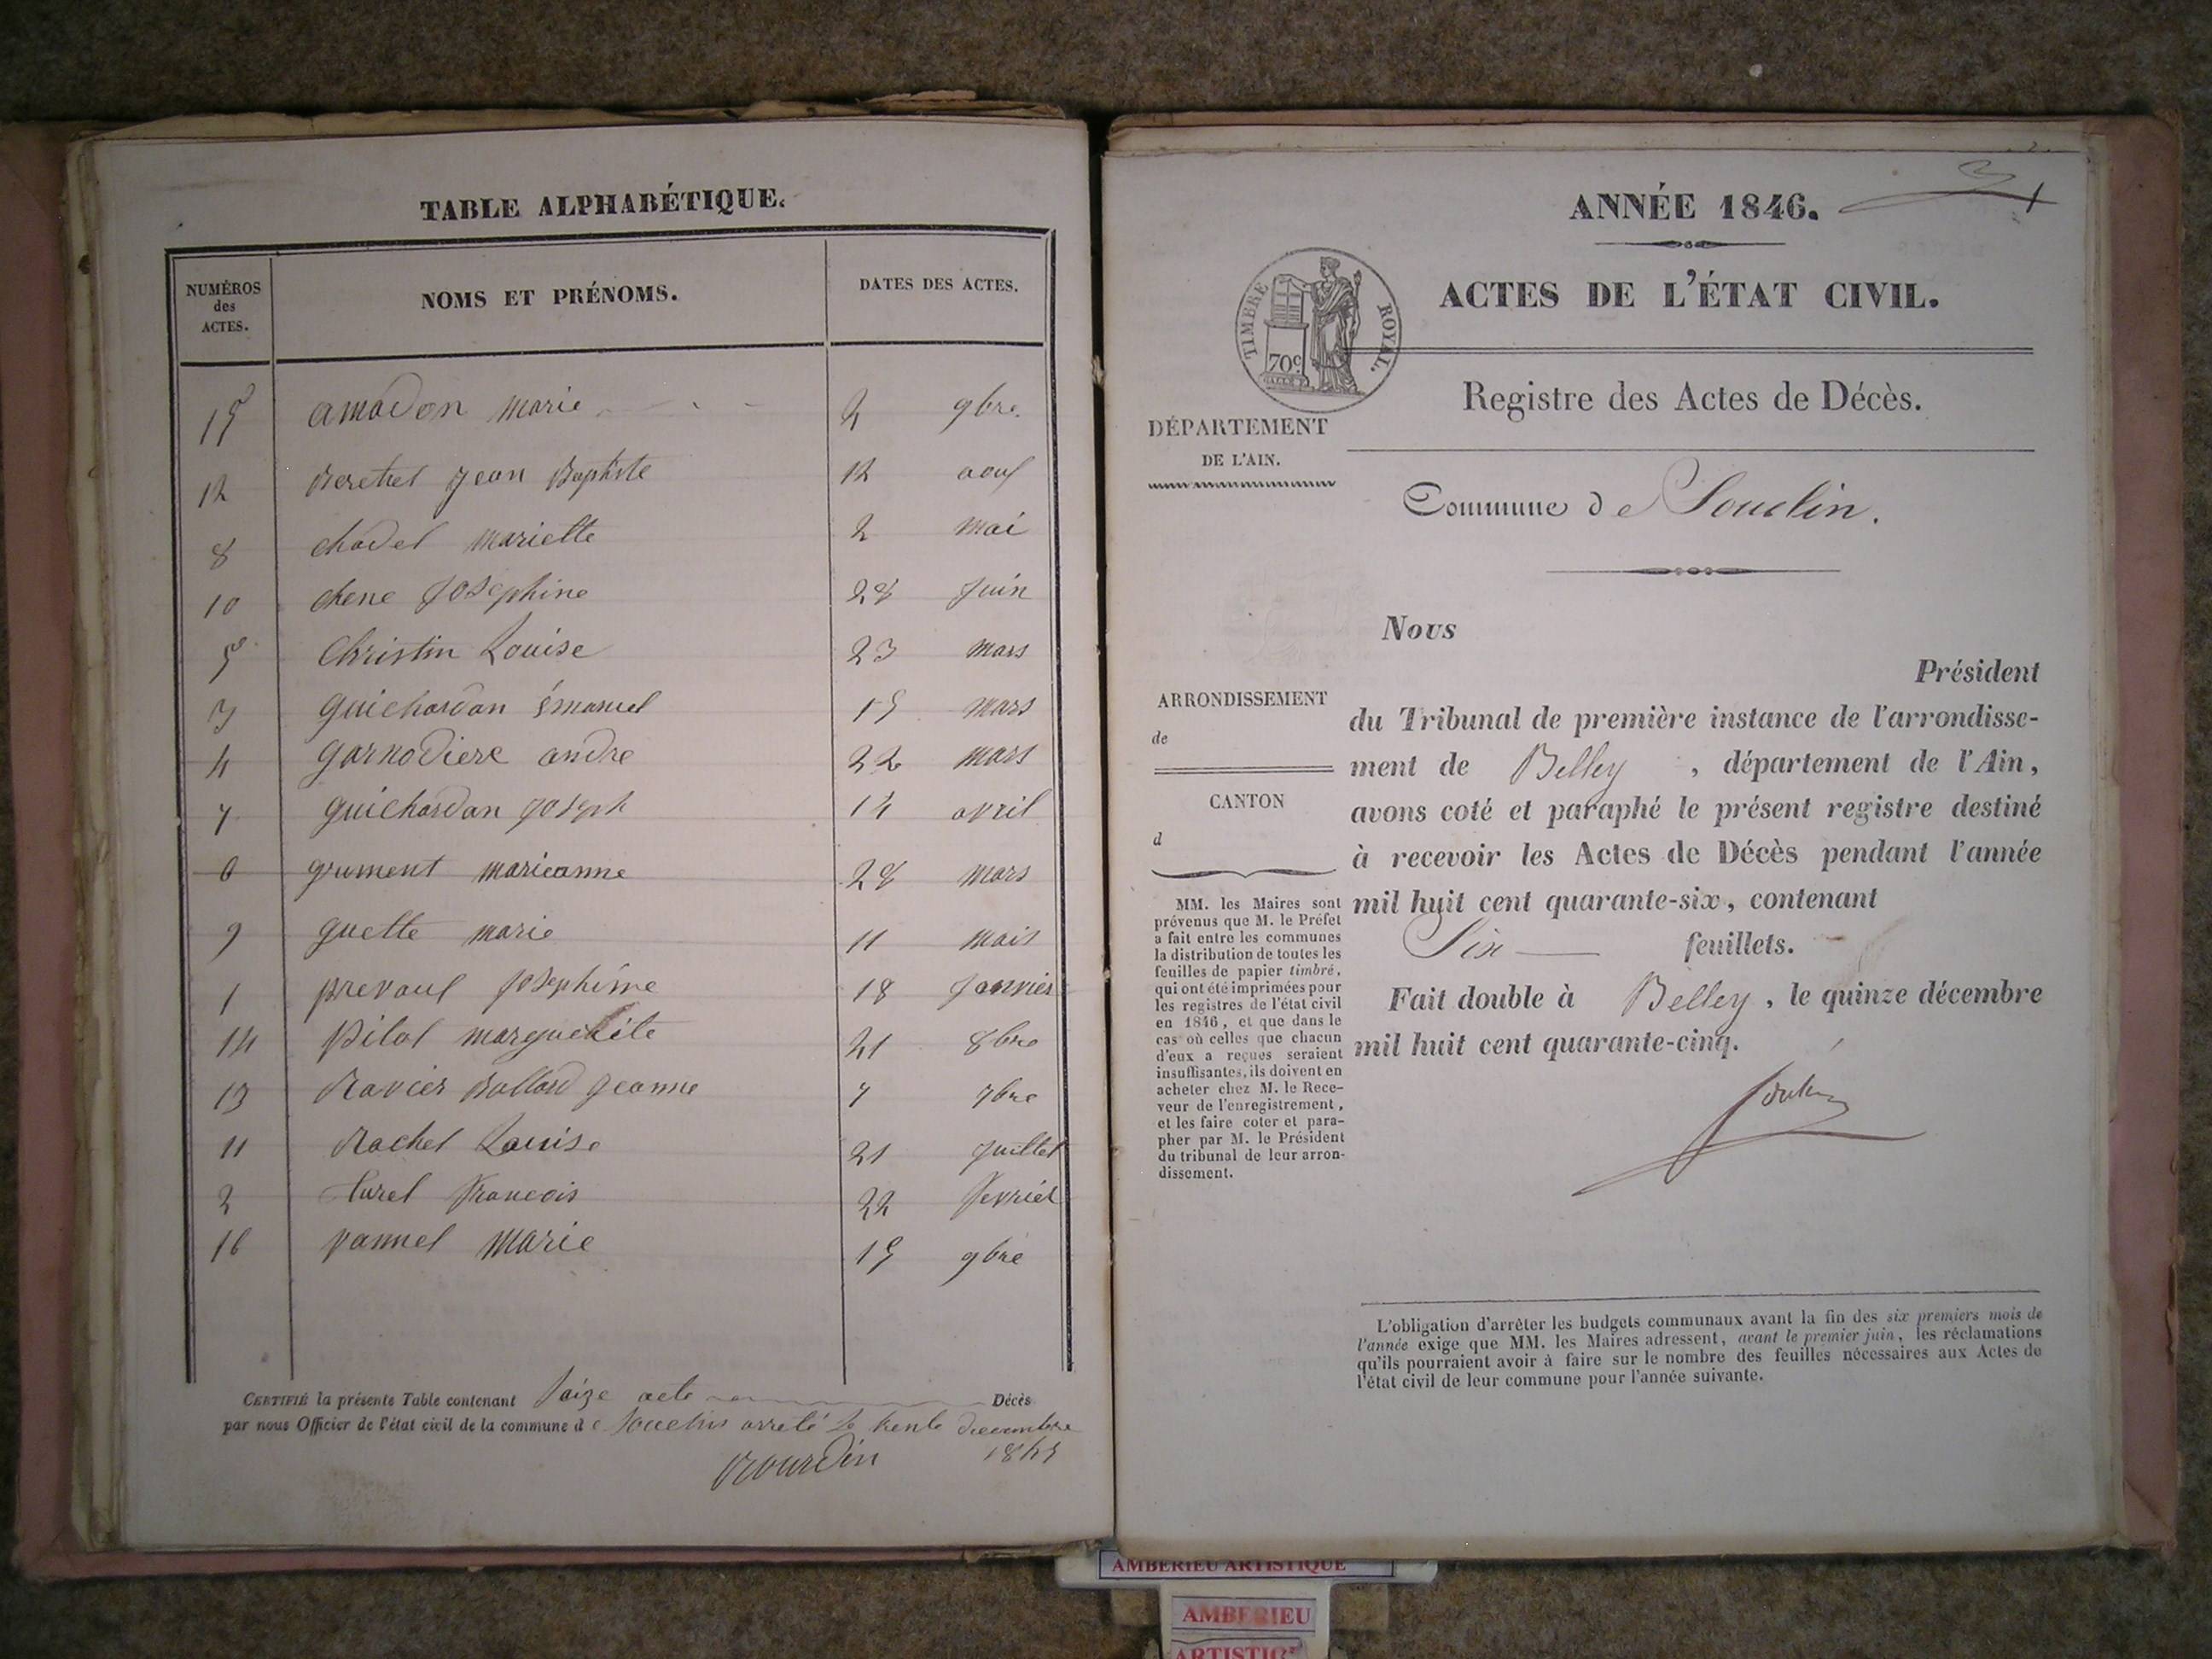 TABLE ALPHABÉTIQUE.
NUMÉROS des ACTES. NOMS ET PRÉNOMS. DATES DES ACTES.
15 amodon marie 2 9bre.
12 Beretret jean Baptiste 12 aout
8 chodel mariette 2 mai
10 chene josephine 28 juin
5 Christin Louise 23 mars
3 guichardan Émanuel 15 mars
4 garnodiere andre 22 mars
7 guichardan joseph 14 avril
6 grument marieanne 28 mars
9 guette marie 11 mais
1 prevaul josephine 18 janvier
14 pilot marguerite 21 8bre
13 Ravier Ballard jeanne 7 7bre
11 Rachet Louise 21 juillet
2 turel francois 22 fevrier
16 vannel marie 15 9bre
CERTIFIÉ la présente Table contenant saize acte Décès
par nous Officier de l'état civil de la commune d e Souclin arreté le trente decembre
1845
Bourdin
ANNÉE 1846.
TIMBRE ROYAL.
70c
ACTES DE L'ÉTAT CIVIL.
Registre des Actes de Décès.
DÉPARTEMENT
DE L'AIN.
Commune de Souclin.
Nous
Président
du Tribunal de première instance de l'arrondisse-
ment de Belley , département de l'Ain,
avons coté et paraphé le présent registre destiné
à recevoir les Actes de Décès pendant l'année
mil huit cent quarante-six, contenant
Six feuillets.
Fait double à Belley, le quinze décembre
mil huit cent quarante-cinq.
ARRONDISSEMENT
de
CANTON
d
MM. les Maires sont
prévenus que M. le Préfet
a fait entre les communes
la distribution de toutes les
feuilles de papier timbré,
qui ont été imprimées pour
les registres de l'état civil
en 1846, et que dans le
cas où celles que chacun
d'eux a reçues seraient
insuffisantes, ils doivent en
acheter chez M. le Rece-
veur de l'enregistrement,
et les faire coter et para-
pher par M. le Président
du tribunal de leur arron-
dissement.
L'obligation d'arrêter les budgets communaux avant la fin des six premiers mois de
l'année exige que MM. les Maires adressent, avant le premier juin, les réclamations
qu'ils pourraient avoir à faire sur le nombre des feuilles nécessaires aux Actes de
l'état civil de leur commune pour l'année suivante.
AMBERIEU ARTISTIQUE
AMBERIEU
ARTISTIQUE